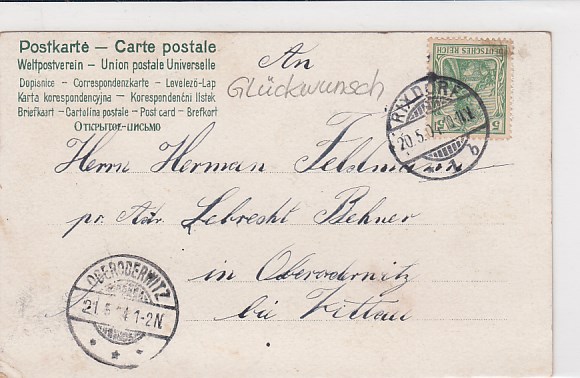 Postkarte – Carte postale
Weltpostverein – Union postale Universelle
Dopisnice – Correspondenzkarte – Levelező-Lap
Karta korespondencyjna – Korespondenční lístek
Briefkart – Cartolina postale – Post card – Brefkort
Открытое-письмо
An
Glückwunsch
DEUTSCHES REICH
5
RIXDORF
20.5.
b
Herrn Herman Feldmann
pr. Adr. Lebrecht Behner
in Oberodernitz
bei Zittau
OBERODERWITZ
21.5. 1-2N